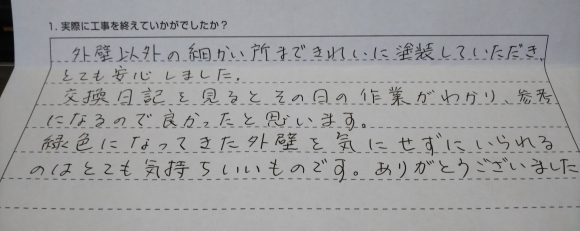 1. 実際に工事を終えていかがでしたか？
外壁以外の細かい所まできれいに塗装していただき、
とても安心しました。
交換日記を見るとその日の作業がわかり、参考
になるので良かったと思います。
緑色になってきた外壁を気にせずにいられる
のはとても気持ちいいものです。ありがとうございました